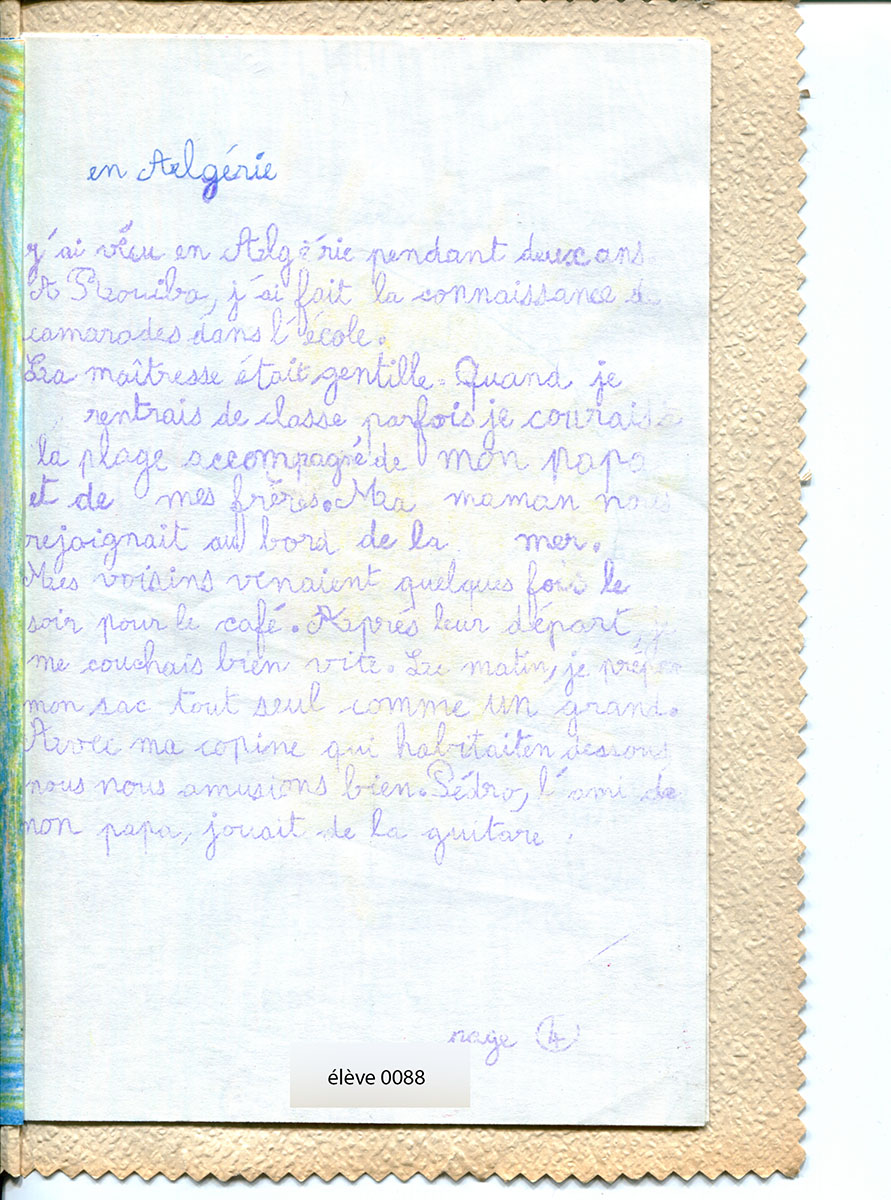 en Algérie
j'ai vécu en Algérie pendant deux ans.
A Rouiba, j'ai fait la connaissance de
camarades dans l'école.
La maîtresse était gentille. Quand je
rentrais de classe parfois je courais à
la plage accompagné de mon papa
et de mes frères. Ma maman nous
rejoignait au bord de la mer.
Mes voisins venaient quelques fois le
soir pour le café. Après leur départ, je
me couchais bien vite. Le matin, je
mon sac tout seul comme un grand.
Avec ma copine qui habitait en dessous
nous nous amusions bien. Pédro, l'ami de
mon papa, jouait de la guitare.
page 4
élève 0088